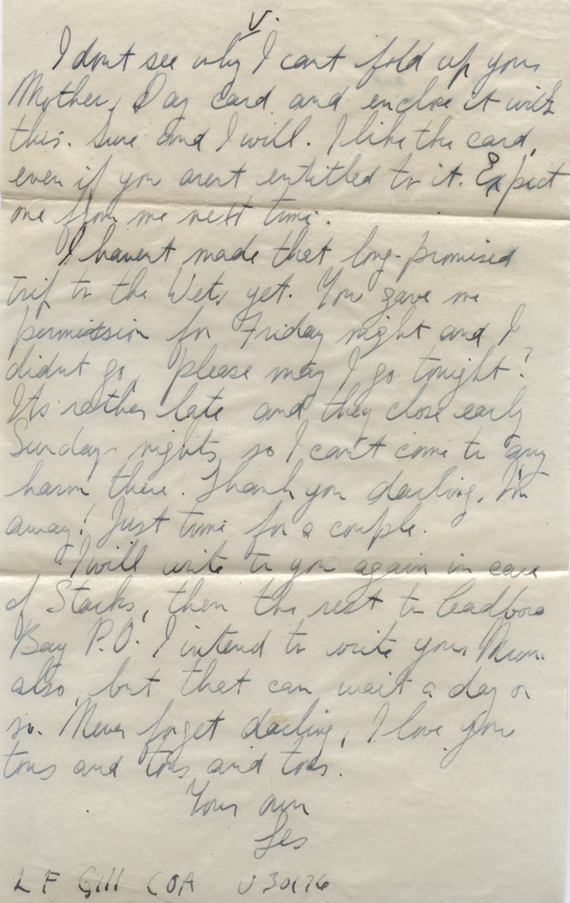 V.
I dont see why I cant fold up your
Mother, Day card and enclose it with
this. Sure and I will. I like the card,
even if you arent entitled to it. Expect
one from me next time.
I havent made that long-promised
trip to the Wets, yet. You gave me
permission for Friday night and I
didnt go, please may I go tonight?
Its rather late and they close early
Sunday nights, so I can't come to any
harm there. Thank you darling, Im
away! Just time for a couple.
I will write to you again in care
of Starks, then the rest to
Bay P.O. I intend to write your Mum
also, but that can wait a day or
so. Never forget darling, I love you
tons and tons and tons.
Your own
Les
L F Gill COA V30176